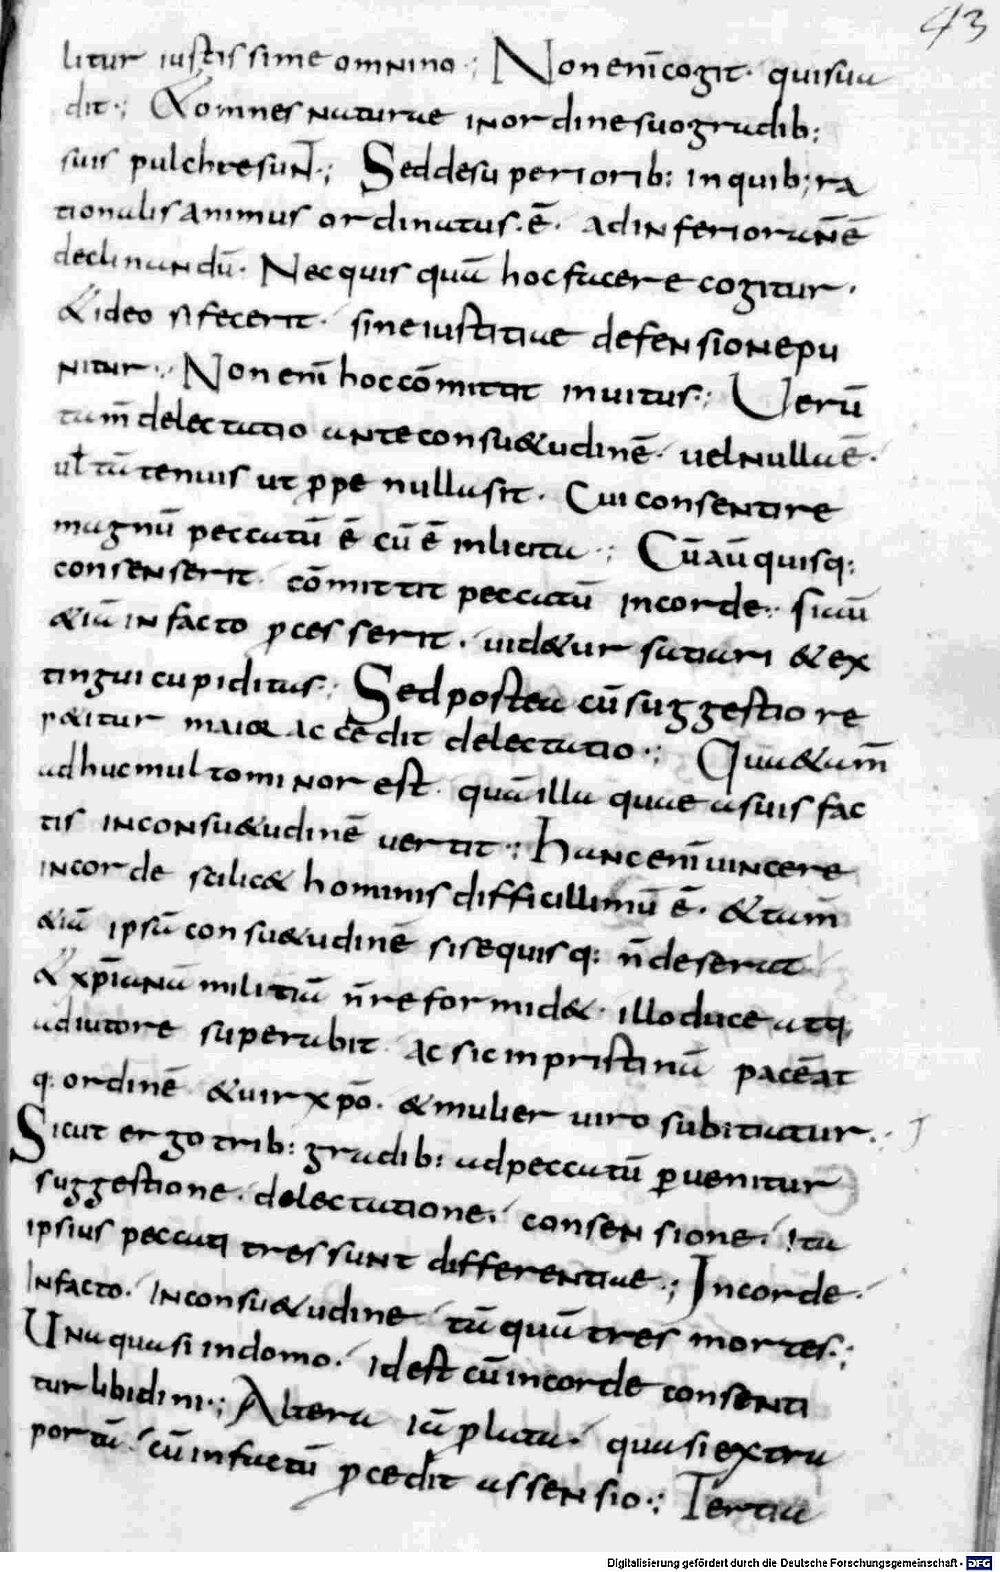 43
litur iustissime omnino·; Non enī cogit· qui sua
dit·; & omnes naturae in ordine suo gradib:
suis pulchre sunt·; Sed de superiorib: in quib; ra
tionalis animus ordinatus·ē· ad inferiora nē ē
declinandū· Nec quis quā hoc facere cogitur·
& ideo si fecerit· sine iustitiae defensione pu
nitur·; Non enī hoc cōmittit inuitus·; Uerū
tam̄ delectatio ante consu&udinē· uel nulla ē·
ul tā tenuis ut ꝓpe nulla sit· Cui consentire
magnū peccatū ē cū ē inlicita·; Cū aū quisq:
consenserit· cōmittit peccatū in corde·; si aū
& iā in facto ꝓcesserit· uid&ur satiari & ex
tingui cupiditas·; Sed postea cū suggestio re
p&itur maior accēdit delectatio·; Quae tam̄
adhuc multo minor est· quā illa quae asuis fac
tis in consu&udinē uertit·; Hanc enī uincere
in corde scilic& hominis difficillimū ē· & tam̄
& iā ipsā consu&udinē si se quisq: n̄ deserat
& xp̄ianā militiā n̄ reformid&· illo duce atq;
adiutore superabit· ac sic in pristinū pacē at
q: ordinē & uir xp̄o· & mulier uiro subitatur·;
Sicut ergo trib: gradib: ad peccatū ꝑuenitur
suggestione· delectatione· consensione· Ita
ipsius peccati tres sunt differentiae·; In corde·
In facto· In consu&udine tā quā tres mortes·;
Una quasi in domo· id est cū in corde consenti
tur libidini·; Altera iā ꝓlata· quasi extra
portā· cū in factū ꝓcedit assensio·; Tertia
Digitalisierung gefördert durch die Deutsche Forschungsgemeinschaft - DFG